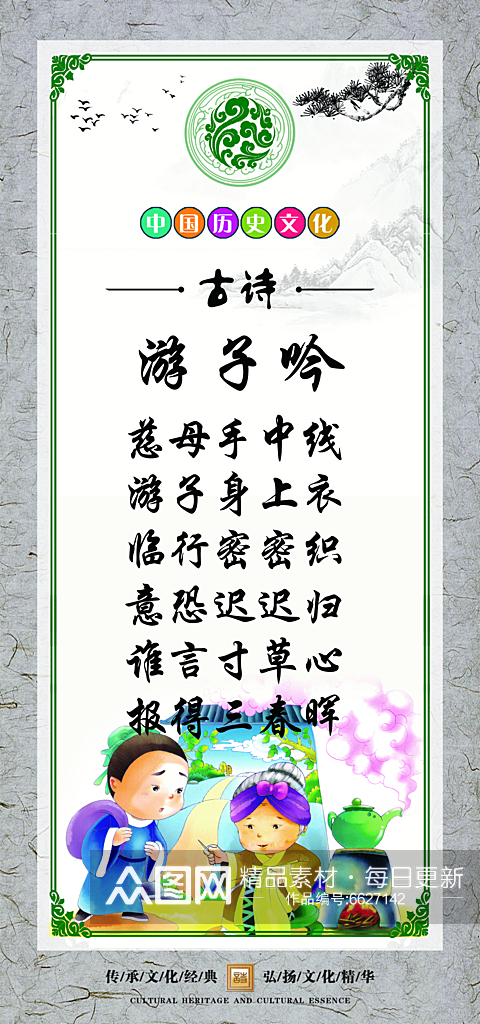 中国历史文化
古诗
游子吟
慈母手中线
游子身上衣
临行密密织
意恐迟迟归
谁言寸草心
报得三春晖
众图网
精品素材·每日更新
作品编号:6627142
传/承/文/化/经/典
弘/扬/文/化/精/华
CULTURAL HERITAGE AND CULTURAL ESSENCE